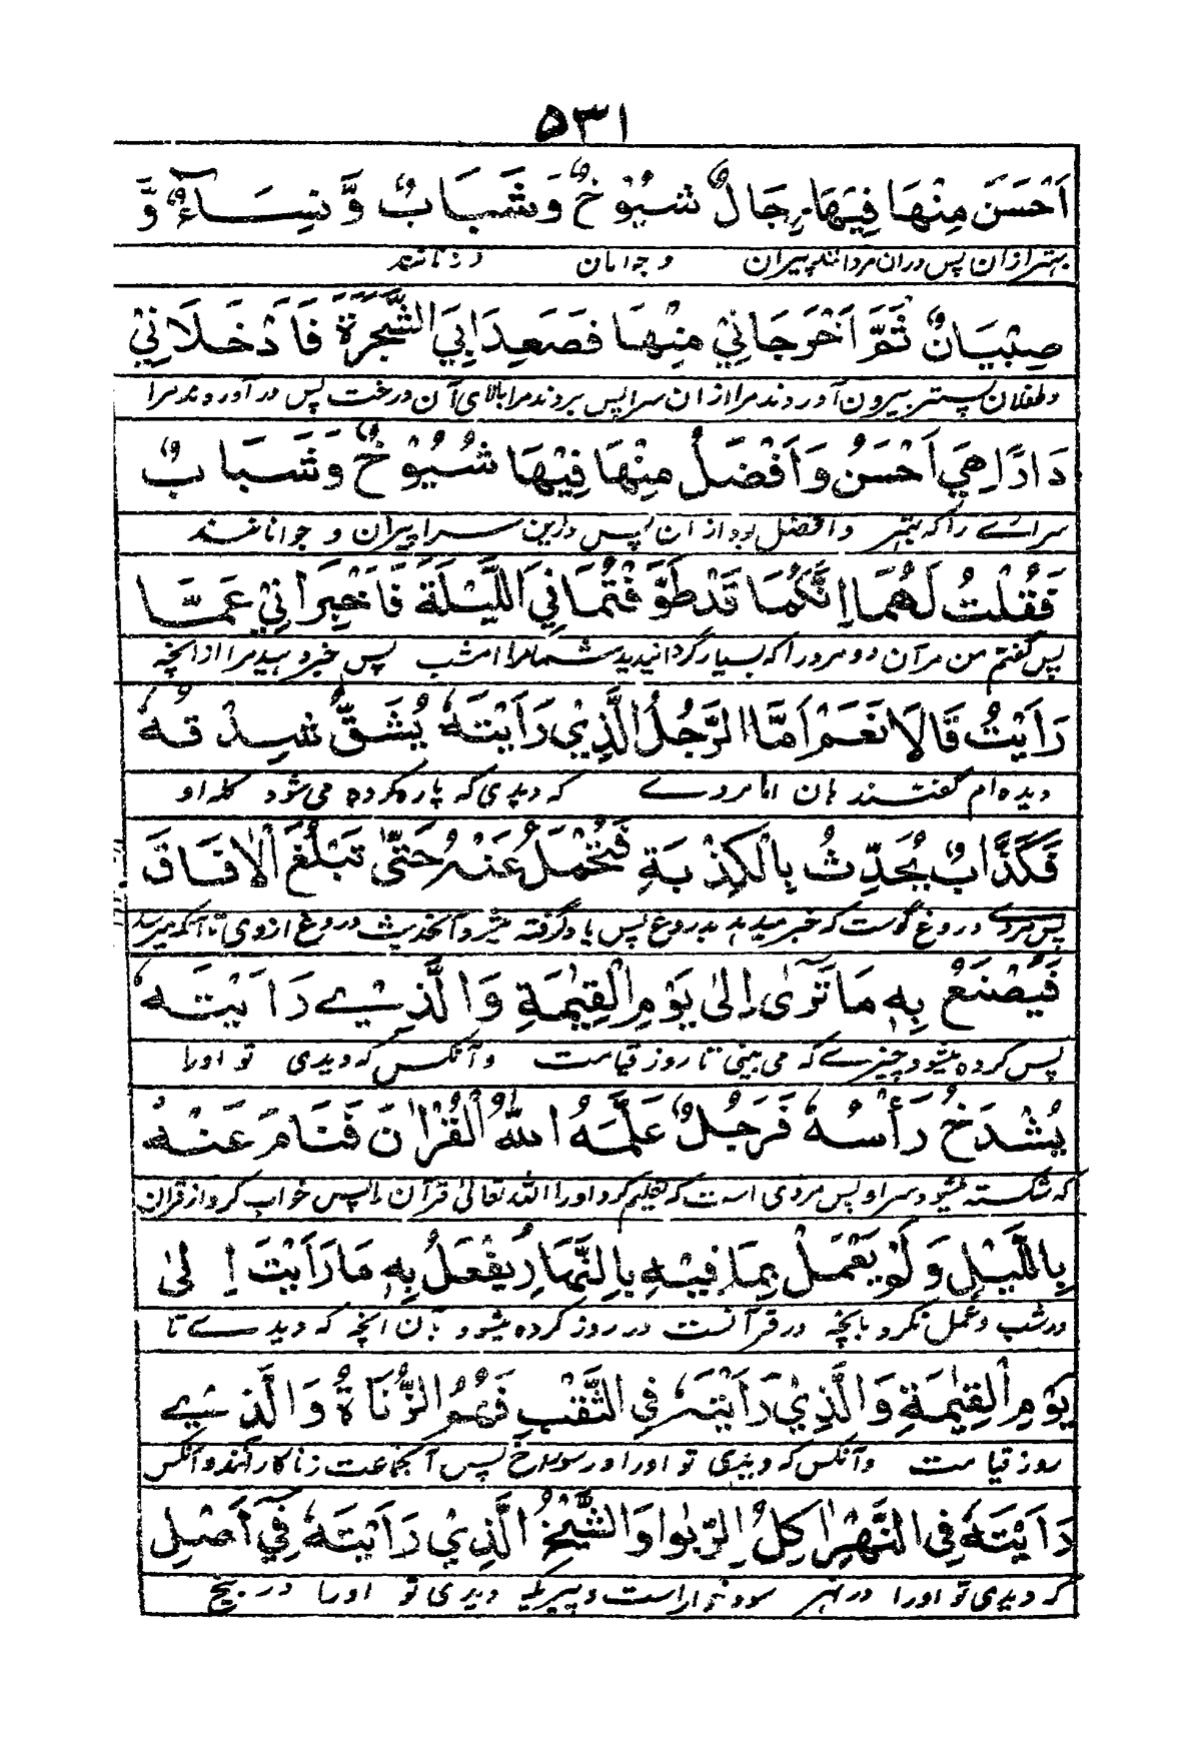 ۵۳۱
اَحْسَنَ مِنْهَا فِيْهَا رِجَالٌ شُيُوْخٌ وَشَبَابٌ وَّنِسَاءٌ وَّ
بهتر ازان پس دران مردانند پیران و جوانان و زنانند
صِبْيَانٌ ثُمَّ اَخْرَجَانِيْ مِنْهَا فَصَعِدَا بِيَ الشَّجَرَةَ فَاَدْخَلَانِيْ
وطفلان پستر بیرون آوردند مرا ازان سرا پس بردند مرا بالای آن درخت پس در آوردند مرا
دَارًا هِيَ اَحْسَنُ وَاَفْضَلُ مِنْهَا فِيْهَا شُيُوْخٌ وَشَبَابٌ
سراے را که بهتر و افضل بود از ان پس دراین سرا پیران و جوانانند
فَقُلْتُ لَهُمَا اِنَّكُمَا قَدْ طَوَّفْتُمَانِيَ اللَّيْلَةَ فَاَخْبِرَانِيْ عَمَّا
پس گفتم من مر آن دو مرد را که بسیار گردانیدید شما مرا امشب پس خبر دهید مرا از انچه
رَاَيْتُ قَالَا نَعَمْ اَمَّا الرَّجُلُ الَّذِيْ رَاَيْتَهٗ يُشَقُّ شِدْقُهٗ
دیده ام گفتند هان اما مردے که دیدی که پاره کرده می شود کله او
فَكَذَّابٌ يُحَدِّثُ بِالْكِذْبَةِ فَتُحْمَلُ عَنْهُ حَتّٰى تَبْلُغَ الْاٰفَاقَ
پس مردے دروغ گوست که خبر میدهد بدروغ پس یاد گرفته میشود آنحدیث دروغ ازوی تا آنکه میرسد
فَيُصْنَعُ بِهٖ مَا تَرٰى اِلىٰ يَوْمِ الْقِيٰمَةِ وَالَّذِيْ رَاَيْتَهٗ
پس کرده میشود چیزے که می بینی تا روز قیامت و آنکس که دیدی تو اورا
يُشْدَخُ رَأْسُهٗ فَرَجُلٌ عَلَّمَهُ اللّٰهُ الْقُرْاٰنَ فَنَامَ عَنْهُ
که شکسته میشود سر او پس مردی است که تعلیم کرد اورا الله تعالیٰ قرآن را پس خواب کرد از قرآن
بِاللَّيْلِ وَلَمْ يَعْمَلْ بِمَا فِيْهِ بِالنَّهَارِ يُفْعَلُ بِهٖ مَا رَاَيْتَ اِلىٰ
در شب و عمل نکرد بانچه در قرآنست در روز کرده میشود بآن انچه که دیدے تا
يَوْمِ الْقِيٰمَةِ وَالَّذِيْ رَاَيْتَهٗ فِي الثَّقْبِ فَهُمُ الزُّنَاةُ وَالَّذِيْ
روز قیامت و آنکس که دیدی تو اورا در سوراخ پس آنجماعت زناکارانند و آنکس
رَاَيْتَهٗ فِي النَّهْرِ اٰكِلُ الرِّبٰوا وَالشَّيْخُ الَّذِيْ رَاَيْتَهٗ فِيْ اَصْلِ
که دیدی تو اورا در نهر سود خوار است و پیریکه دیدی تو اورا در بیخ